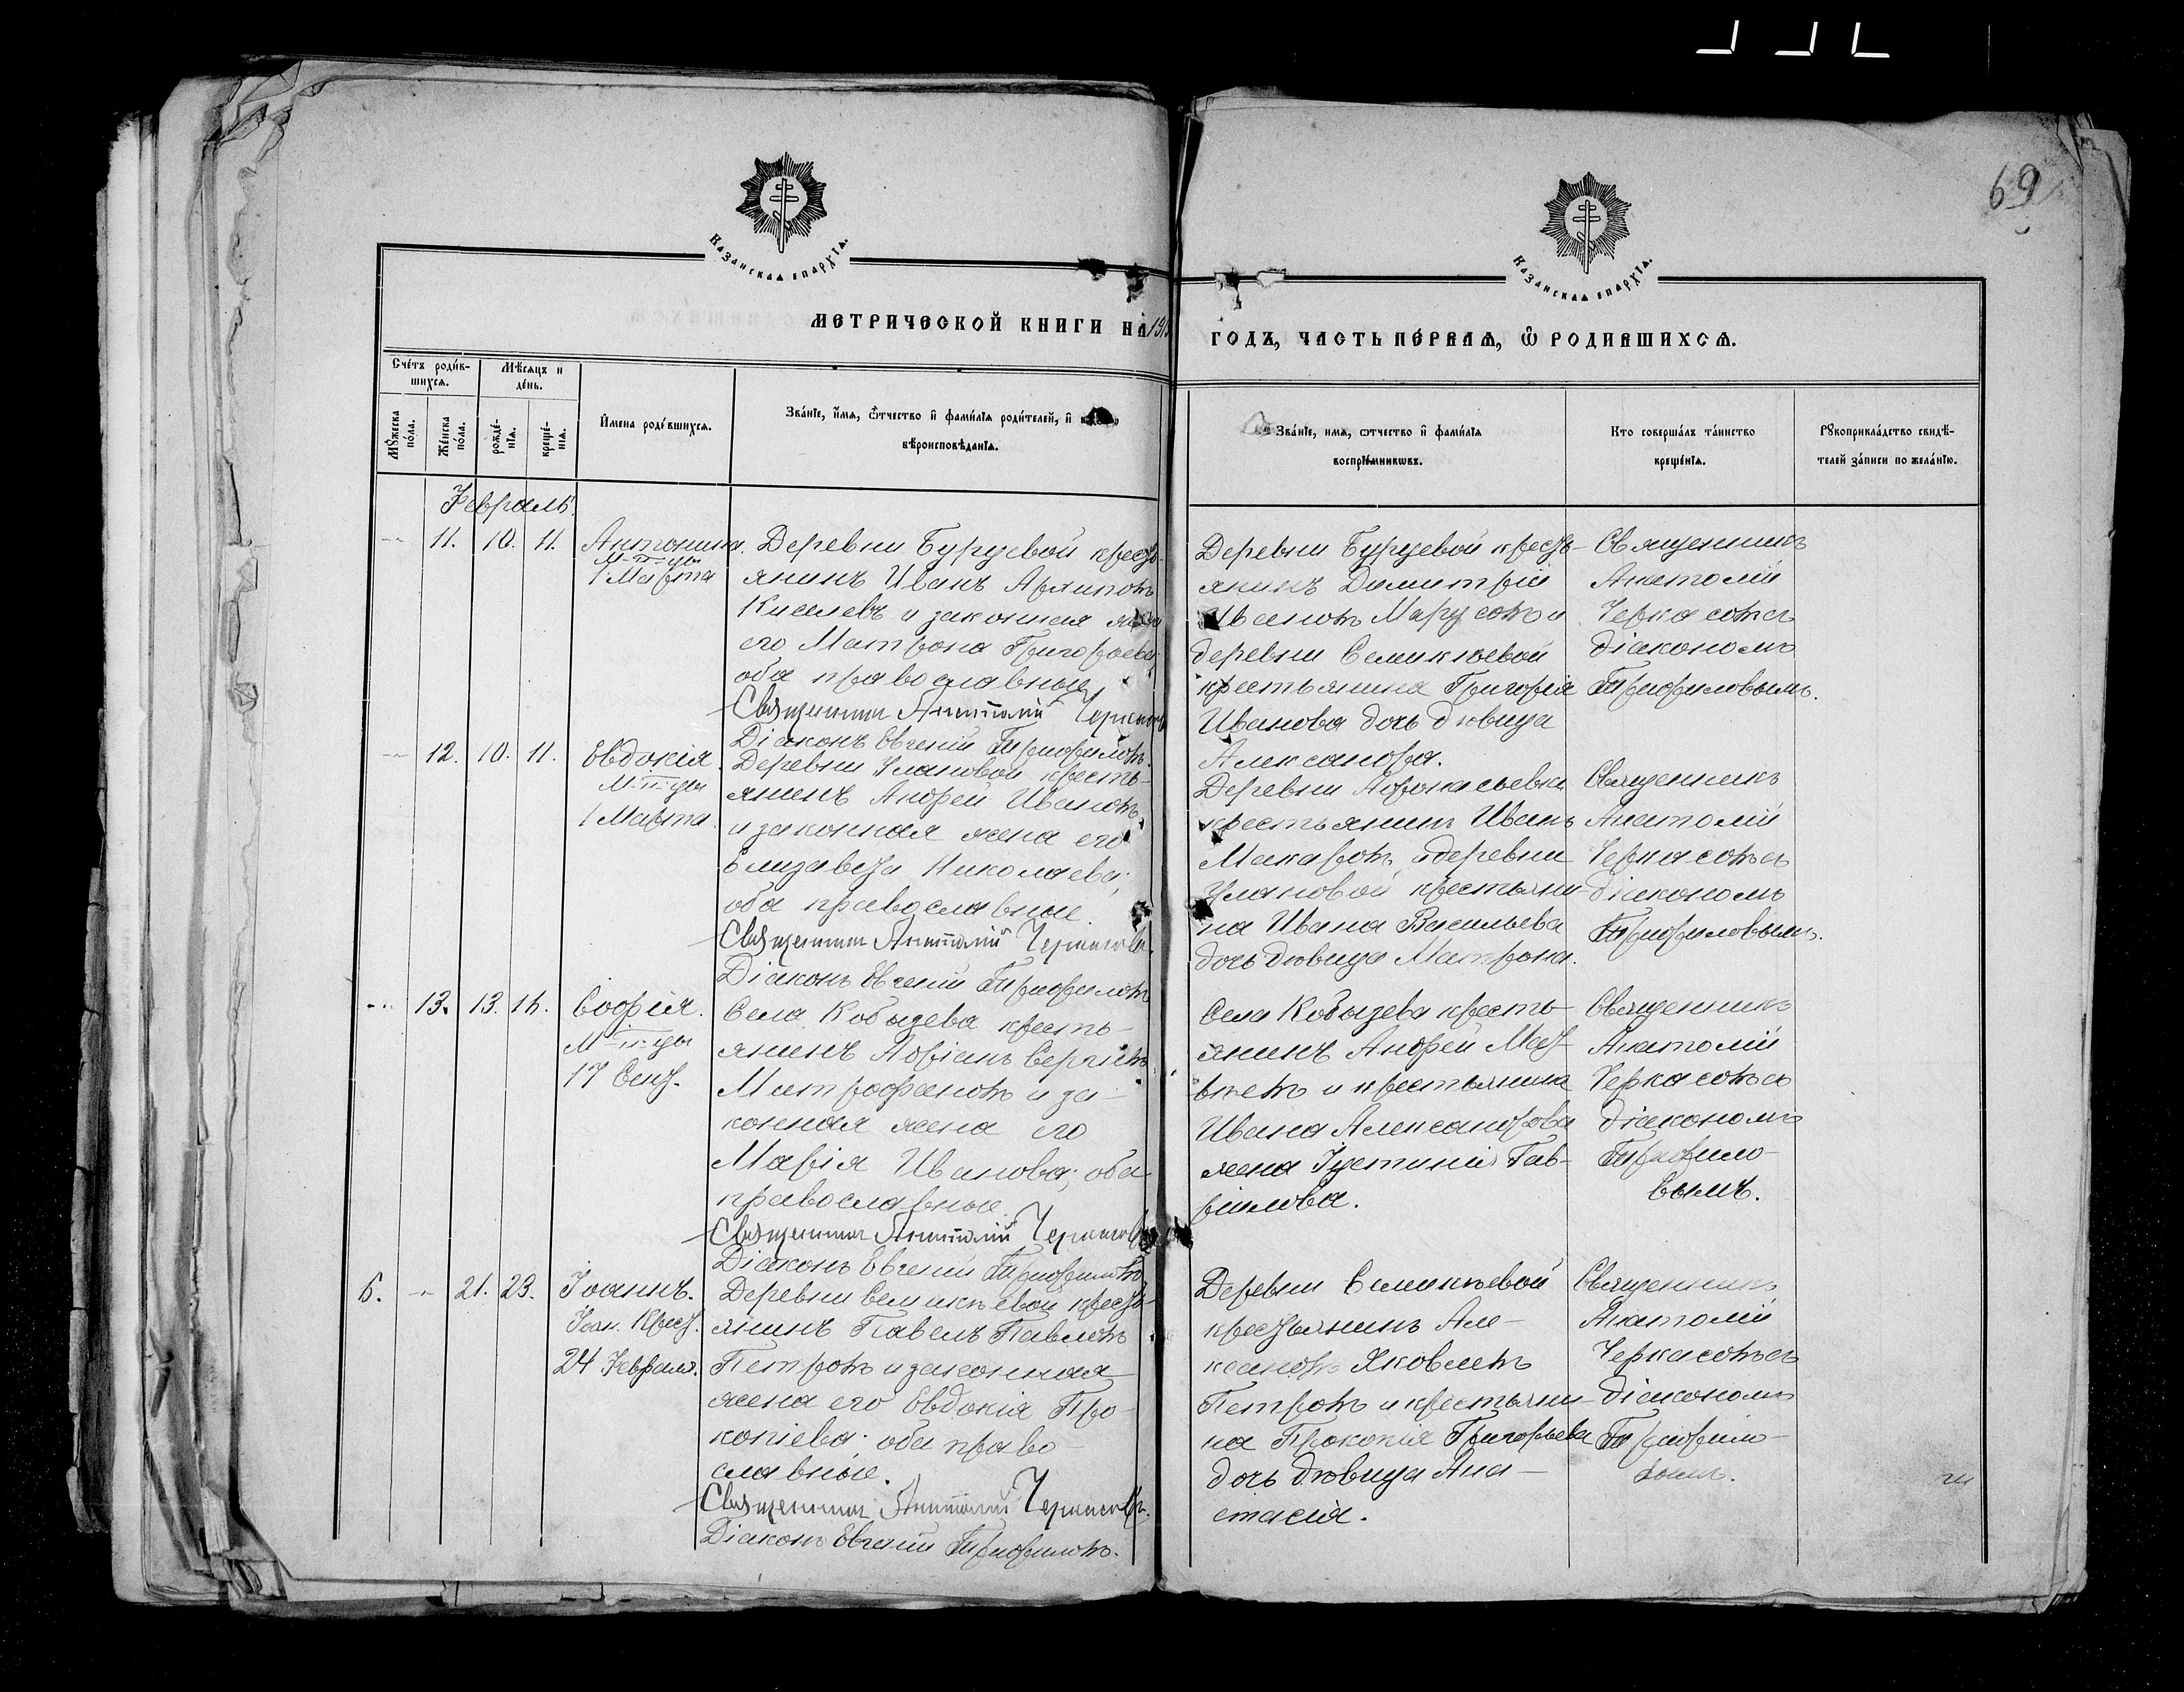 69
Казанская епархїа.
Казанская епархїа.
МЕТРИЧЕСКОЙ КНИГИ НА 191
ГОДЪ, ЧАСТЬ ПЕ́РВАѦ, Ѡ РОДИВШИХСѦ.
Сче́тъ роди́в-
шихсѧ.
Мѣ́сяцъ и
де́нь.
Мꙋ́жеска
по́ла.
Же́нска
по́ла.
рожде́-
нїѧ.
креще́-
нїѧ.
И́мена роди́вшихсѧ.
Зва́нїе, и҆́мѧ, ѻ҆́тчество и҆ фами́лїѧ роди́телей, и҆
вѣроисповѣ́данїѧ.
Зва́нїе, имѧ, ѻтчество и҆ фами́лїѧ
воспрїе́мниковъ.
Кто соверша́лъ та́инство
креще́нїѧ.
Рꙋкоприкла́дство свидѣ́-
телей за́писи по жела́нїю.
Февраль.
-- 11. 10. 11. Антонина.
М-цы
1 Марта
Деревни Бурцевой кресть-
янинъ Иванъ Архиповъ
Киселевъ и законная жена
его Матрона Григорьева;
оба православные
Священникъ Анатолій Черкасовъ
Діаконъ Евгеній Трофимовъ.
Деревни Бурцевой кресть-
янинъ Димитрій
Ивановъ Марусовъ и
деревни Семикѣевой
крестьянина Григорія
Иванова дочь дѣвица
Александра.
Священникъ
Анатолій
Черкасовъ съ
діакономъ
-- 12. 10. 11. Евдокія.
М-цы
1 Марта.
Деревни Улановой кресть-
янинъ Андрей Ивановъ
и законная жена его
Елизавета Николаева;
оба православные.
Священникъ Анатолій Черкасовъ.
Діаконъ Евгеній
Деревни Афонасьевки
крестьянинъ Иванъ
Макаровъ и деревни
Улановой крестьяни-
на Ивана Васильева
дочь дѣвица Матрона.
Священникъ
Анатолій
Черкасовъ съ
діакономъ
-- 13. 13. 16. Софія.
М-цы
17 Сент.
Села Кобызева кресть-
янинъ Адріанъ Сергѣевъ
Митрофановъ и за-
конная жена его
Марія Иванова; оба
православные.
Священникъ Анатолій Черкасовъ
Діаконъ Евгеній
Села Кобызева кресть-
янинъ Андрей Мат-
вѣевъ и крестьянина
Ивана Александрова
жена Іустинія Гав-
рилова.
Священникъ
Анатолій
Черкасовъ съ
діакономъ
вымъ.
6. -- 21. 23. Іоаннъ.
Іоан. Крест.
24 Февраля.
Деревни Семикѣевой кресть-
янинъ Павелъ Павловъ
Петровъ и законная
жена его Евдокія Про-
копіева; оба право-
славные.
Священникъ Анатолій Черкасовъ.
Діаконъ Евгеній
Деревни Семикѣевой
крестьянинъ Але-
ксандръ Яковлевъ
Петровъ и крестьяни-
на Прокопія Григорьева
дочь дѣвица Ана-
стасія.
Священникъ
Анатолій
Черкасовъ съ
діакономъ
вымъ.